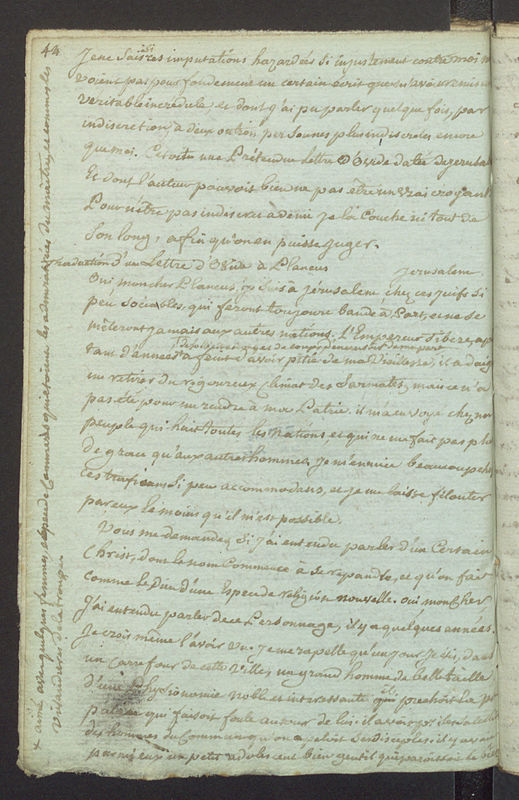 44
Je ne sais si ces imputations hazardées si injustement contre moi n'
avoient pas pour fondement un certain écrit que m'avoit remis un
veritable incredule, et dont j'ai pu parler quelque fois, par
indiscretion, à deux ou trois personnes plus indiscretes encore
que moi. C'etoit une Prétendue Lettre D'Ovide datée de Jerusalem
Et dont l'auteur pourroit bien ne pas être un vrai croyant
Pour n'être pas indiscret à demi je la Couche ici tout de
son long, afin qu'on en puisse juger.
traduction d'un Lettre d'Ovide à Plancus
Jerusalem.
Oui mon cher Plancus, je suis à Jérusalem, chez ces Juifs si
peu sociables, qui feront toujours bande à Part, et ne se
mêleront jamais aux autres nations. L'Empereur Tibere, ap
tant d'années a feint d'avoir pitié de ma Vieillesse, il a daigné
me retirer du rigoureux climat des Sarmates, mais ce n'a
pas été pour me rendre à ma Patrie. il m'a envoyé chez un
peuple qui hait toutes les nations et qui ne me fait pas plus
de grace qu'aux autres hommes, Je m'ennuie beaucoup chez
ces trafiquans si peu accommodans, et je me laisse filouter
par eux le moins qu'il m'est possible.
Vous me demandez si j'ai entendu parler d'un Certain
Christ, dont le nom Commence à se repandre, et qu'on fait
comme le Dieu d'une Espece de religion nouvelle. Oui mon Cher
J'ai entendu parler de ce Personnage, il y a quelques années.
Je crois même l'avoir vu. Je me rapelle qu'un jour je vis, dans
un carrefour de cette Ville, un grand homme de belle taille
d'une Physionomie noble et interessante qui prechoit la
qui faisoit foule autour de lui: il avoit
des hommes du Commun qu'on apeloit ses Disciples; il y avoit
parmi eux un petit adolescent bien gentil qui paroissoit le
+ aimé avec quelques femmes, espece de Commeres qui etoient les admiratrices du maitre, et comme les
Vivandieres de la troupe.